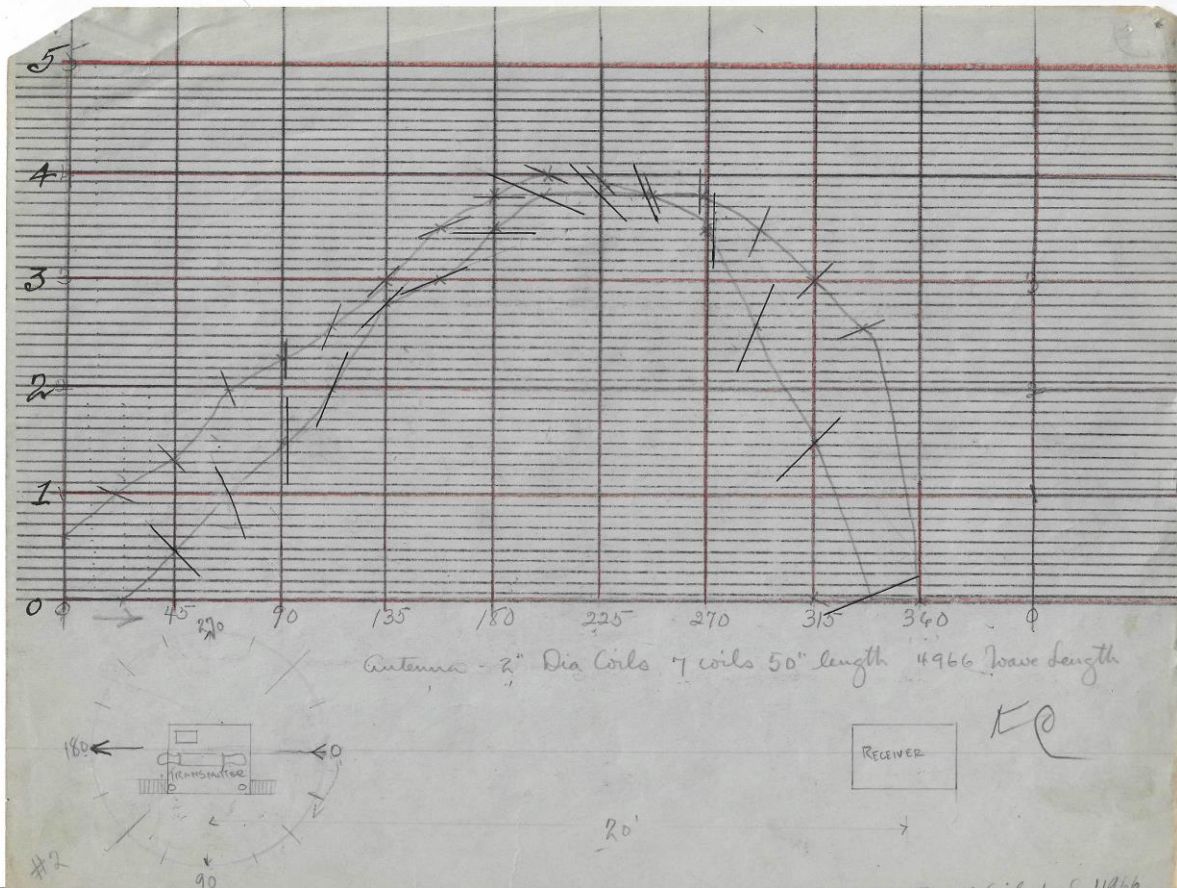 5
4
3 3
2 2
1 1
0 0 45 90 135 180 225 270 315 360 0
Antenna - 2" Dia Coils 7 coils 50" length 4966 Wave Length
270
180 0
TRANSMITTER
RECEIVER
20'
90
#2
4966